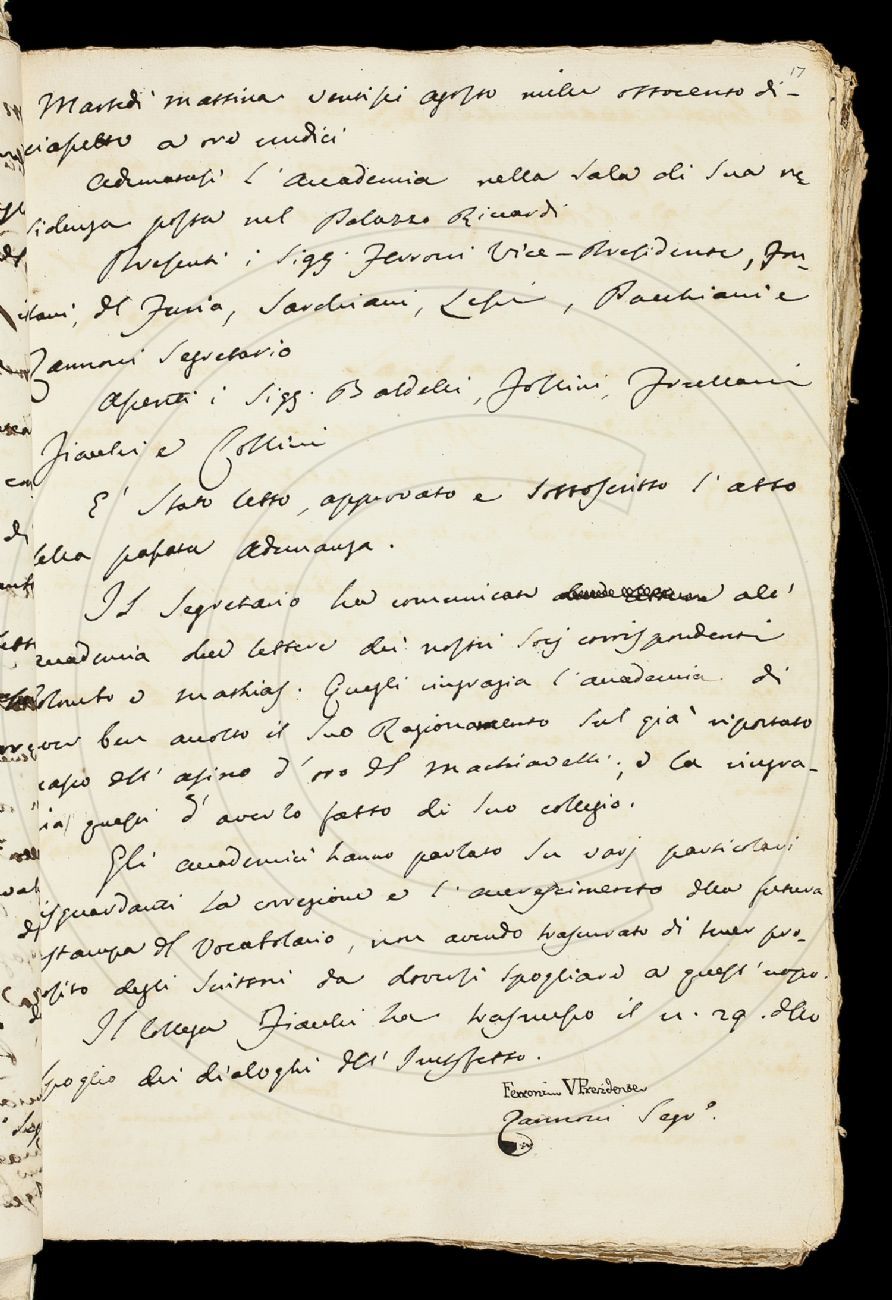 17
Martedì mattina ventisei agosto mille ottocento di-
ciassette a ore undici
Adunatasi l'Accademia nella Sala di Sua re-
sidenza posta nel Palazzo Riccardi
Presenti i Sigg. Ferroni Vice-Presidente, Fon-
tani, del Furia, Sarchiani, Lessi, Pacchiani e
Zannoni Segretario
Assenti i Sigg. Baldelli, Follini, Fiacchi e Collini
E' Stato letto, approvato e sottoscritto l'atto
della passata Adunanza.
Il Segretario ha comunicate all'
Accademia due lettere dei nostri Socj corrispondenti
Colombo e Mathias. Quegli ringrazia l'Accademia di
aver ben accolto il Suo Ragionamento sul già riportato
passo dell'asino d'oro del Machiavelli; e la ringra-
zia questi d'averlo fatto di Suo collegio.
Gli Accademici hanno parlato su varj particolari
risguardanti la correzione e l'accrescimento della futura
ristampa del Vocabolario, non avendo trascurato di tener pro-
posito degli Scittori da doversi spogliare a quest'uopo.
Il Collega Fiacchi ha trasmesso il n. 29. dello
Spoglio dei dialoghi dell'
Ferroni V Presidente
Zannoni Segr.º